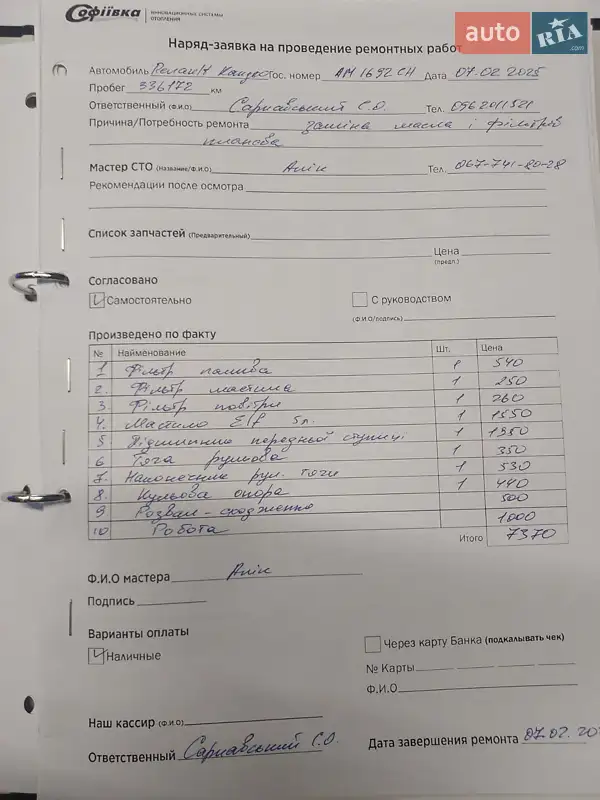 Софіївка
ИННОВАЦИОННЫЕ СИСТЕМЫ
ОТОПЛЕНИЯ
auto RIA .com
Наряд-заявка на проведение ремонтных работ
Автомобиль Renault Кангоо Гос. номер АМ 1692 СН Дата 07.02.2025
Пробег 336172 км
Ответственный (Ф.И.О) Сарнавський С.О. Тел. 0962011521
Причина/Потребность ремонта заміна масла і фільтрів
планова
Мастер СТО (Название/Ф.И.О) Алік Тел. 067-741-80-28
Рекомендации после осмотра
Список запчастей (Предварительный)
Цена
(предп.)
Согласовано
Самостоятельно С руководством
(Ф.И.О/подпись)
Произведено по факту
№ Найменование Шт. Цена
1 Фільтр палива 1 540
2. Фільтр мастила 1 250
3. Фільтр повітря 1 260
4. Мастило Elf 5л. 1 1550
5 Підшипник передньої ступиці 1 1950
6 Тяга рульова 1 350
7. Наконечник рул. тяги 1 530
8. Кульова опора 1 440
9 Розвал-сходження 500
10 Робота 1000
Итого 7370
Ф.И.О мастера Алік
Подпись
Варианты оплаты
Наличные Через карту Банка (подкалывать чек)
№ Карты
Ф.И.О
Наш кассир (Ф.И.О)
Ответственный Сарнавський С.О. Дата завершения ремонта 07.02.20